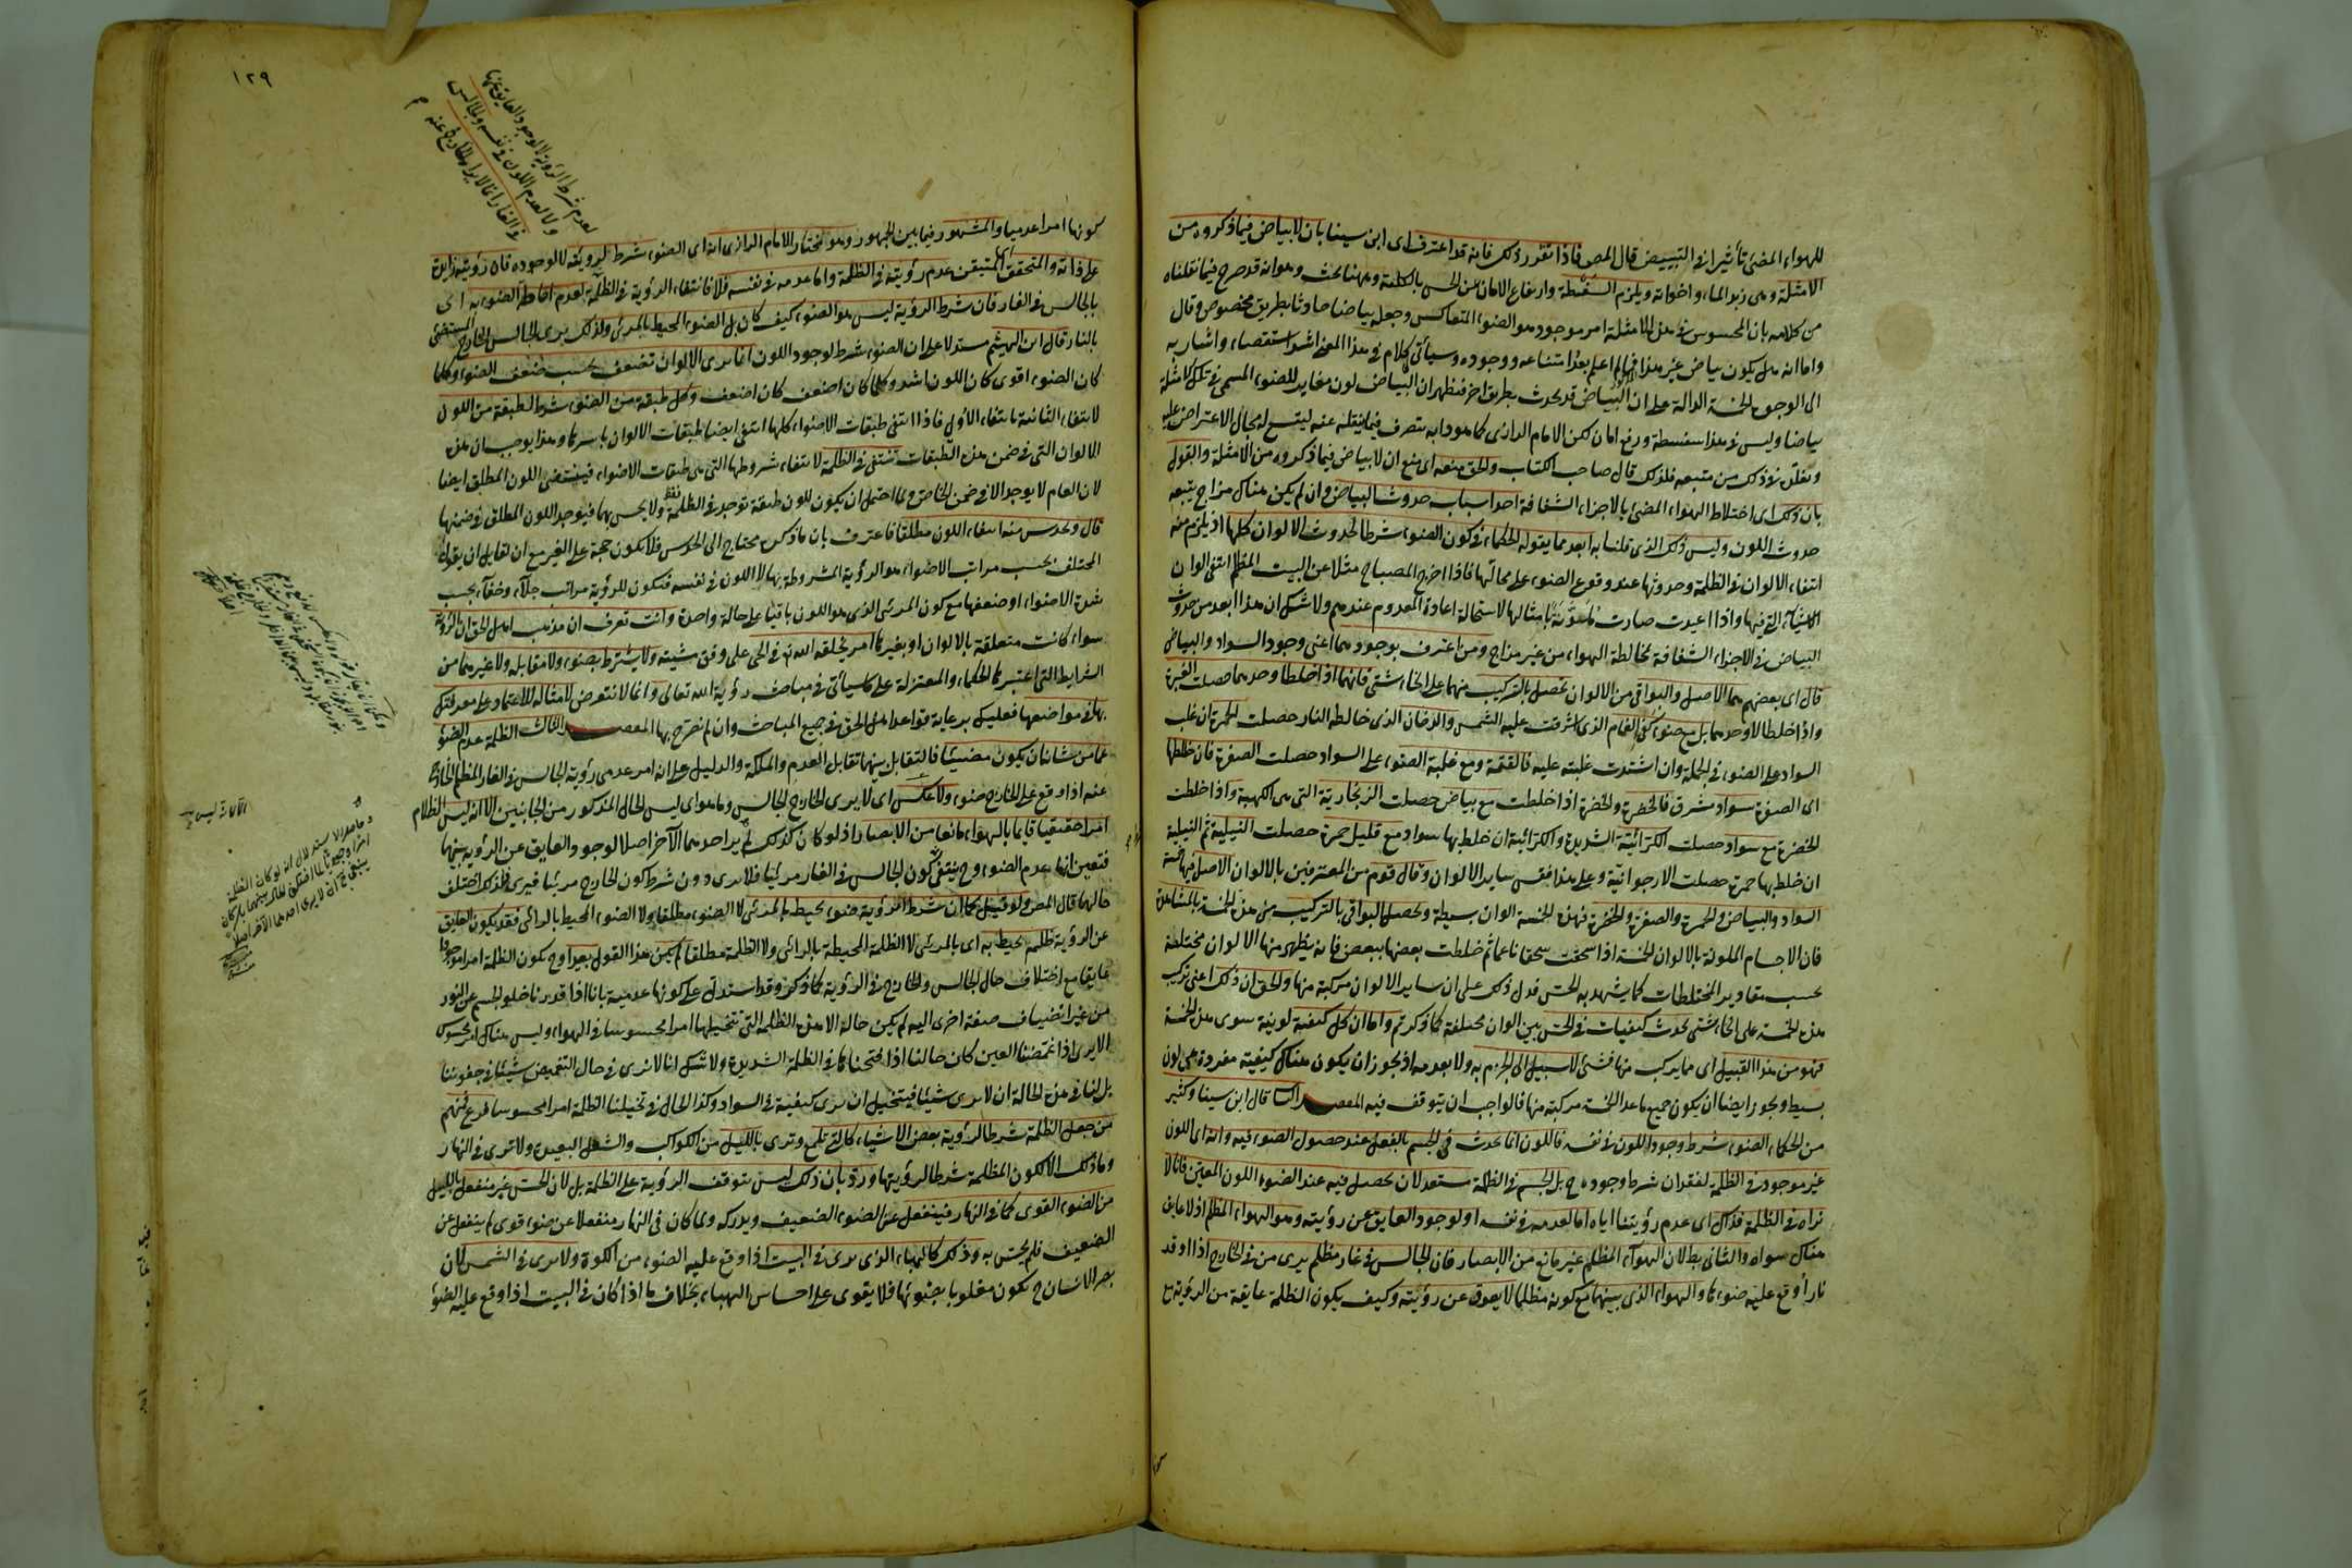 للهواء المضئ تأثيرا في التبييض قال المص فاذا تقرر ذلك فانه قد اعترف اى ابن سينا بان لا بياض فيما ذكروه من
الامثلة وهى زبد الماء واخواته ويلزم السفسطة وارتفاع الامان عن الحس بالكلية وههنا بحث وهو انه قد صرح فيما نقلناه
من كلامه بان المحسوس فى هذه الامثلة امر موجود هو الضوء المتعاكس وجعله بياضا حادثا بطريق مخصوص وقال
واما انه هل يكون بياض غير هذا فمما لم اعلم بعد امتناعه ووجوده وسيأتى كلام فى هذا المعنى اشد استقصاء واشار به
الى الوجوه الخمسة الدالة على ان البياض قد يحدث بطريق اخر فظهر ان البياض لون مغاير للضوء المسمى فى تلك الامثلة
بياضا وليس فى هذا سفسطة ورفع امان لكن الامام الرازى كما هو دابه تصرف فيما ينقله عنه ليتسع له مجال الاعتراض عليه
وتقلد فى ذلك من متبعه فلذلك قال صاحب الكتاب والحق منعه اى منع ان لا بياض فيما ذكروه من الامثلة والقول
بان ذلك اى اختلاط الهواء المضئ بالاجزاء الشفافة احد اسباب حدوث البياض وان لم يكن هناك مزاج يتبعه
حدوث اللون وليس ذلك الذى قلنا به ابعد مما يقوله الحكماء فى كون الضوء شرطا لحدوث الالوان كلها اذ يلزم منه
انتفاء الالوان فى الظلمة وحدوثها عند وقوع الضوء على محالها فاذا اخرج المصباح مثلا عن البيت المظلم انتفى الوان
الاشياء التى فيها واذا اعيدت صارت ملونة بامثالها لاستحالة اعادة المعدوم عندهم ولا شك ان هذا ابعد من حدوث
البياض فى الاجزاء الشفافة بمخالطة الهواء من غير مزاج ومن اعترف بوجودهما اعنى وجود السواد والبياض
قال اى بعضهم هما الاصل والبواقى من الالوان تحصل بالتركيب منهما على انحاء شتى فانهما اذا خلطا وحدهما حصلت الغبرة
واذا خلطا لا وحدهما بل مع ضوء كفى الغمام الذى اشرقت عليه الشمس والدخان الذى خالطه النار حصلت الحمرة ان غلب
السواد على الضوء فى الجملة وان اشتدت غلبته عليه فالقتمة ومع غلبة الضوء على السواد حصلت الصفرة فان خلطها
اى الصفرة سواد مشرق فالخضرة والخضرة اذا خلطت مع بياض حصلت الزنجارية التى هى الكهبة واذا خلطت
الخضرة مع سواد حصلت الكراثية الشديدة والكراثية ان خلط بها سواد مع قليل حمرة حصلت النيلية ثم النيلية
ان خلط بها حمرة حصلت الارجوانية وعلى هذا فقس ساير الالوان وقال قوم من المعترفين بالالوان الاصل فيها خمسة
السواد والبياض والحمرة والصفرة والخضرة فهذه الخمسة الوان بسيطة وتحصل البواقى بالتركيب من هذه الخمسة بالمشاهدة
فان الاجسام الملونة بالالوان الخمسة اذا سحقت سحقا ناعما ثم خلطت بعضها ببعض فانه يظهر منها الالوان مختلفة
بحسب مقادير المختلطات كما يشهد به الحس فدل ذلك على ان ساير الالوان مركبة منها والحق ان ذلك اعنى تركيب
هذه الخمسة على انحاء شتى يحدث كيفيات فى الحس هى الوان مختلفة كما ذكرتم واما ان كل كيفية لونية سوى هذه الخمسة
فهو من هذا القبيل اى مما يركب منها فشئ لا سبيل الى الجزم به ولا بعدمه اذ يجوز ان يكون هناك كيفية مفردة هى لون
بسيط ويجوز ايضا ان يكون جميع ما عدا الخمسة مركبة منها فالواجب ان يتوقف فيه المقصد قال ابن سينا وكثير
من الحكماء الضوء شرط وجود اللون فى نفسه فاللون انما يحدث فى الجسم بالفعل عند حصول الضوء فيه وانه اى اللون
غير موجود فى الظلمة لفقدان شرط وجوده ح بل الجسم فى الظلمة مستعد لان يحصل فيه عند الضوء اللون المعين فانا لا
نراه فى الظلمة فذاك اى عدم رؤيتنا اياه اما لعدمه فى نفسه او لوجود العايق عن رؤيته وهو الهواء المظلم اذ لا عايق
هناك سواه والثانى بط لان الهواء المظلم غير مانع من الابصار فان الجالس فى غار مظلم يرى من فى الخارج اذا اوقد
نارا وقع عليه ضوءها والهواء الذى بينهما مع كونه مظلما لا يعوق عن رؤيته وكيف يكون الظلمة عايقة من الرؤية مع
١٢٩
لعدم شرط الرؤية لا لوجود العايق عنها
ولا لعدم اللون فى نفسه والجالس
فى الغار انما لا يراه الخارج عنه م
كونها امرا عدميا والمشهور فيما بين الجمهور وهو المختار للامام الرازى انه اى الضوء شرط لرؤيته لا لوجوده فان رؤيته زايدة
على ذاته والمتحقق المتيقن عدم رؤيته فى الظلمة واما عدمه فى نفسه فلا فانتفاء الرؤية فى الظلمة لعدم احاطة الضوء به اى
بالجالس فى الغار فان شرط الرؤية ليس هو الضوء كيف كان بل الضوء المحيط بالمرئى ولذلك يرى الجالس الخارج المستضئ
بالنار قال ابن الهيثم مستدلا على ان الضوء شرط لوجود اللون انا نرى الالوان تضعف بحسب ضعف الضوء وكلما
كان الضوء اقوى كان اللون اشد وكلما كان اضعف كان اضعف وكل طبقة من الضوء شرط لطبقة من اللون
لانتفاء الثانية بانتفاء الاولى فاذا انتفى طبقات الاضواء كلها انتفى ايضا طبقات الالوان باسرها وهذا يوجب ان هذه
الالوان التى فى ضمن هذه الطبقات تنتفى فى الظلمة لانتفاء شروطها التى هى طبقات الاضواء فينتفى اللون المطلق ايضا
لان العام لا يوجد الا فى ضمن الخاص ولما احتمل ان يكون للون طبقة توجد فى الظلمة فقط ولا يحس بها فيوجد اللون المطلق فى ضمنها
قال ويحدس منه انتفاء اللون مطلقا فاعترف بان ما ذكره محتاج الى الحدس فلا يكون حجة على الغير مع ان لقايل ان يقول
المختلف بحسب مراتب الاضواء هو الرؤية المشروطة بها لا اللون فى نفسه فتكون للرؤية مراتب جلاء وخفاء بحسب
شدة الاضواء او ضعفها مع كون المرئى الذى هو اللون باقيا على حالة واحدة وانت تعرف ان مذهب اهل الحق ان الرؤية
سواء كانت متعلقة بالالوان او بغيرها امر يخلقه الله تع فى الحى على وفق مشيته ولا يشترط بضوء ولا مقابلة ولا غيرهما من
الشرايط التى اعتبرها الحكماء والمعتزلة على ما سيأتى فى مباحث رؤية الله تعالى وانما لا نتعرض لامثاله للاعتماد على معرفتك
بها فى مواضعها فعليك برعاية قواعد اهل الحق فى جميع المباحث وان لم نصرح بها المقصد الثالث الظلمة عدم الضوء
عما من شانه ان يكون مضيئا فالتقابل بينهما تقابل العدم والملكة والدليل على انه امر عدمى رؤية الجالس فى الغار المظلم الخارج
عنه اذا وقع على الخارج ضوء ولا عكس اى لا يرى الخارج الجالس وما هو اى ليس الحال المذكور من الجانبين الا انه ليس الظلام
امرا حقيقيا قايما بالهواء مانعا من الابصار اذ لو كان كذلك لم ير احدهما الاخر اصلا لوجود العايق عن الرؤية بينهما
فتعين انها عدم الضوء وح ينتفى كون الجالس فى الغار مرئيا فلا يرى دون شرط كون الخارج مرئيا فيرى فلذلك اختلف
حالهما قال المص ولو قيل كما ان شرط الرؤية ضوء يحيط بالمرئى لا الضوء مطلقا ولا الضوء المحيط بالرائى فقد يكون العايق
عن الرؤية ظلمة يحيط به اى بالمرئى لا الظلمة المحيطة بالرائى ولا الظلمة مطلقا لم يكن هذا القول بعيدا وح يكون الظلمة امرا موجودا
عايقا مع اختلاف حال الجالس والخارج فى الرؤية كما ذكر وقد استدل على كونها عدمية بانا اذا قدرنا خلو الجسم عن النور
من غير انضياف صفة اخرى اليه لم يكن حاله الا هذه الظلمة التى نتخيلها امرا محسوسا فى الهواء وليس هناك امر محسوس
الا يرى انا اذا غمضنا العين كان حالنا اذا فتحنا كما فى الظلمة الشديدة ولا شك انا لا نرى فى حال التغميض شيئا فى جفوننا
بل لنا فى هذه الحالة ان لا نرى شيئا فيتخيل ان نرى كيفية فى السواد وكذا الحال فى تخيلنا الظلمة امرا محسوسا فرع فمنهم
من جعل الظلمة شرطا لرؤية بعض الاشياء كالتى تلمع وترى بالليل من الكواكب والشعل البعيدة ولا ترى فى النهار
وما ذلك الا لكون المظلمة شرطا لرؤيتها ورد بان ذلك ليس بتوقف الرؤية على الظلمة بل لان الحس غير منفعل بالليل
من الضوء القوى كما فى النهار فينفعل عن الضوء الضعيف ويدركه ولما كان فى النهار منفعلا عن ضوء قوى لم ينفعل عن
الضعيف فلم يحس به وذلك كالهباء الذى يرى فى البيت اذا وقع عليه الضوء من الكوة ولا يرى فى الشمس لان
بصر الانسان ح يكون مغلوبا بضوئها فلا يقوى على احساس الهباء بخلاف ما اذا كان فى البيت اذا وقع عليه الضوء
وحاصل الاستدلال انه لو كان الظلمة
ينبغى ح ان لا يرى احدهما الآخر اصلا